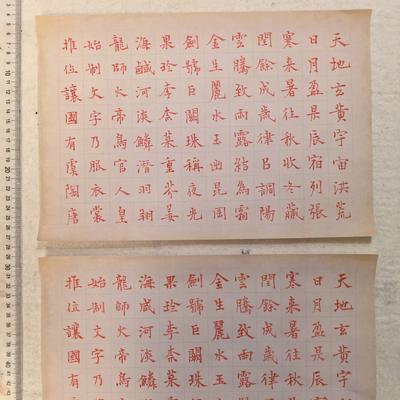 天地玄黃宇宙洪荒
日月盈昃辰宿列張
寒来暑往秋收冬藏
閏餘成歲律呂調陽
雲騰致雨露結為霜
金生麗水玉出崑岡
劍號巨闕珠稱夜光
果珍李柰菜重芥薑
海鹹河淡鱗潛羽翔
龍師火帝鳥官人皇
始制文字乃服衣裳
推位讓國有虞陶唐
天地玄黃宇
日月盈昃辰
寒来暑往秋
閏餘成歲律
雲騰致雨露
金生麗水玉
劍號巨闕珠
果珍李柰菜
海咸河淡鱗
龍師火帝鳥
始制文字乃
推位讓國有